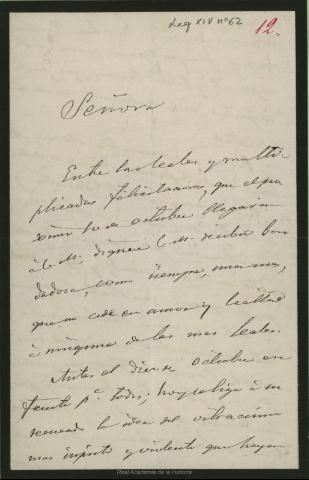 Leg XIV nº 62
12.
Señora
Entre las leales y multi-
plicadas felicitaciones, que el pro
ximo 10 de octubre llegaran
á V. M., dignese V. M. recibir bon
dadosa, como siempre, una mas,
que no cede en amor y lealtad
á ninguna de las mas leales.
Antes el diez de Octubre era
fausto p.ª todos; hoy se liga á su
recuerdo la idea del
mas injusto y violento que hayan
Real Academia de la Historia